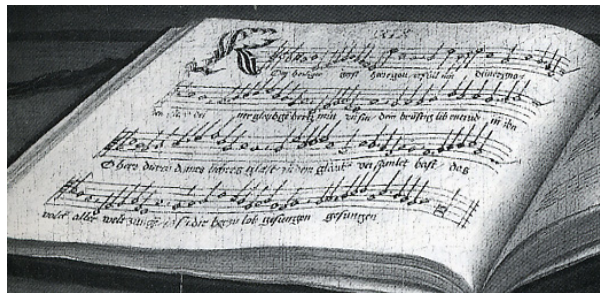 XIX
Om heiliger geist herregott erfüll mit deiner gna
den ner gleubge hertz mut vn sin dein brustig lib entzund in ihn
O herr durch deines lichtes glast zu dem glaube versamlet hast das
volck aller welt zunge dir herr zu lob gesungen gesungen